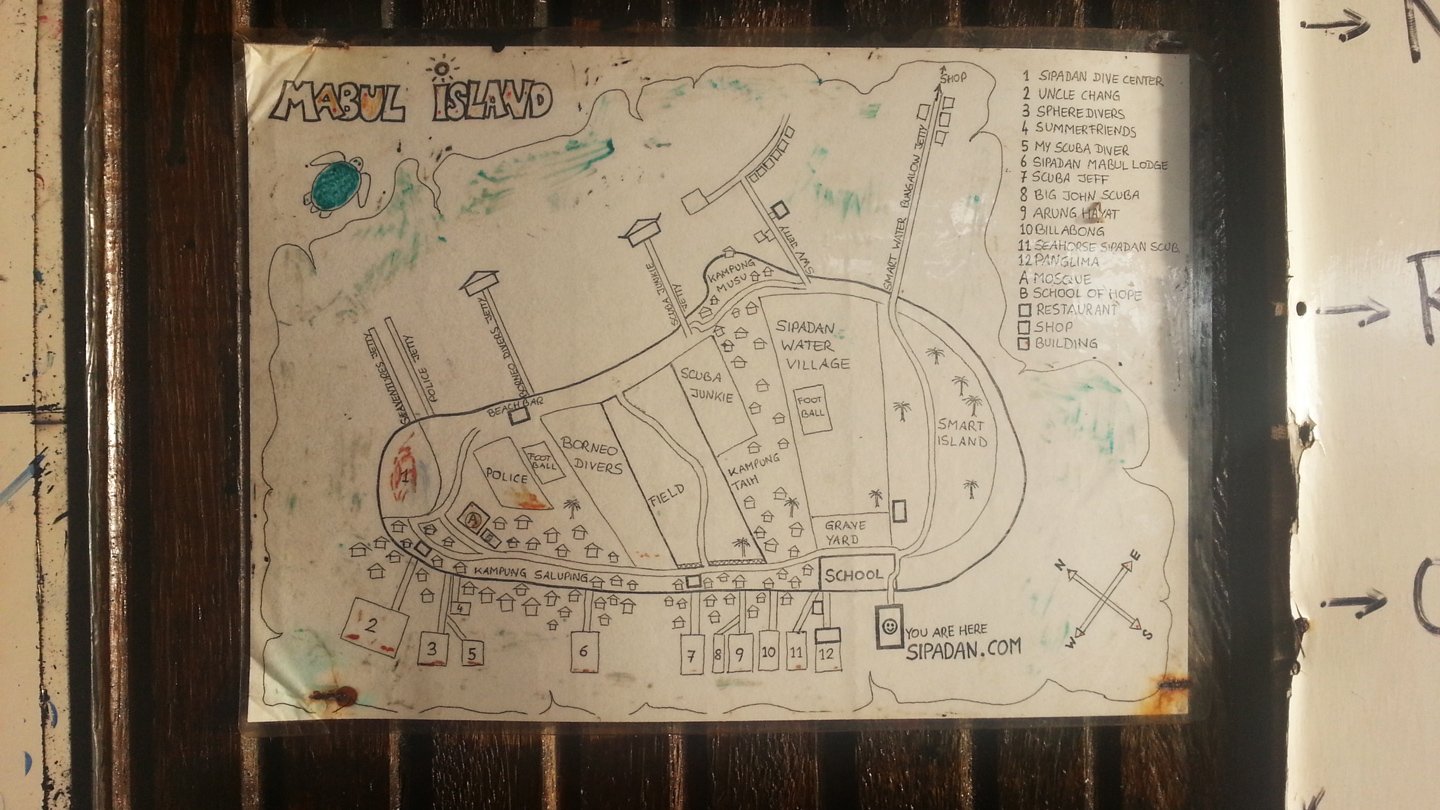 MABUL ISLAND
SHOP
1 SIPADAN DIVE CENTER
2 UNCLE CHANG
3 SPHEREDIVERS
4 SUMMERFRIENDS
5 MY SCUBA DIVER
6 SIPADAN MABUL LODGE
7 SCUBA JEFF
8 BIG JOHN SCUBA
9 ARUNG HAYAT
10 BILLABONG
11 SEAHORSE SIPADAN SCUB
12 PANGLIMA
A MOSQUE
B SCHOOL OF HOPE
RESTAURANT
SHOP
BUILDING
SMART WATER BUNGALOW JETTY
SWV JETTY
KAMPUNG
MUSU
SCUBA JUNKIE
JETTY
BORNEO DIVERS JETTY
POLICE JETTY
SEAVENTURES JETTY
BEACH BAR
SIPADAN
WATER
VILLAGE
FOOT
BALL
SCUBA
JUNKIE
SMART
ISLAND
BORNEO
DIVERS
FOOT
BALL
POLICE
1
FIELD
KAMPUNG
TAIH
A
B
GRAVE
YARD
SCHOOL
KAMPUNG SALUPING
2
3
4
5
6
7
8
9
10
11
12
YOU ARE HERE
SIPADAN.COM
N
E
W
S